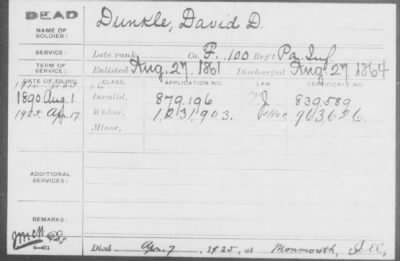 DEAD
Dunkle, David D.
NAME OF SOLDIER:
SERVICE: Late rank, Co. F. 100 Reg't Pa. Inf.
TERM OF SERVICE: Enlisted Aug. 27, 1861 Discharged Aug. 27, 1864
DATE OF FILING. CLASS. APPLICATION NO. LAW. CERTIFICATE NO.
1890 Aug. 1 Invalid, 879.196 J 839.589
1925. Apr. 17 Widow, 1,231,903. 963626.
Minor,
ADDITIONAL SERVICES:
REMARKS:
Died Apr. 7, 1925, at Monmouth, Ill.